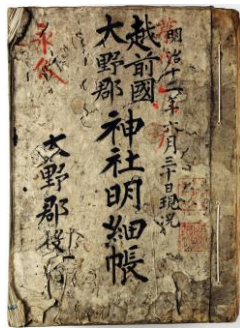 明治十二年八月三十日現況
越前國
大野郡
神社明細帳
永代
大野郡役所